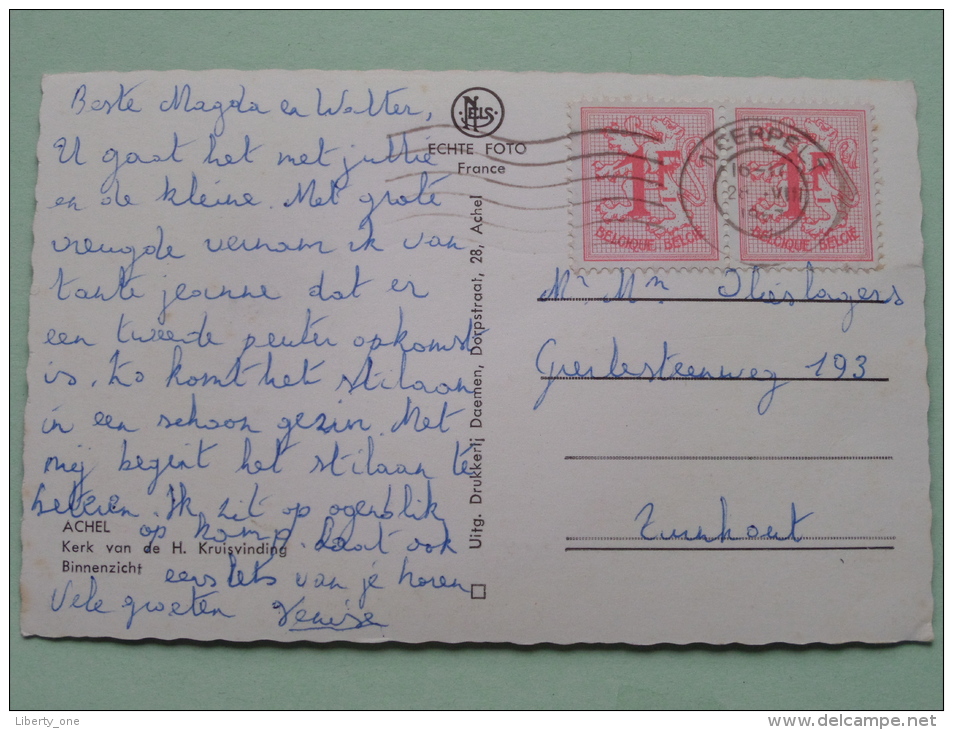 Beste Magda en Walter,
U gaat het met jullie
en de kleine. Met grote
vreugde vernam ik van
tante jeanne dat er
een tweede peuter opkomst
is. Zo komt het stilaan
in een schoon gezin. Met
mij begint het stilaan te
beteren. Ik zit op ogenblik
op kamp. Laat ook
eens iets van je horen
Vele groeten
ACHEL
Kerk van de H. Kruisvinding
Binnenzicht
NELS
ECHTE FOTO
France
Uitg. Drukkerij Daemen, Dorpstraat, 28, Achel
1F
BELGIQUE-BELGIË
1F
BELGIQUE-BELGIË
NEERPEL
Mr Mn
193
Turnhout
Liberty_one
www.delcampe.net